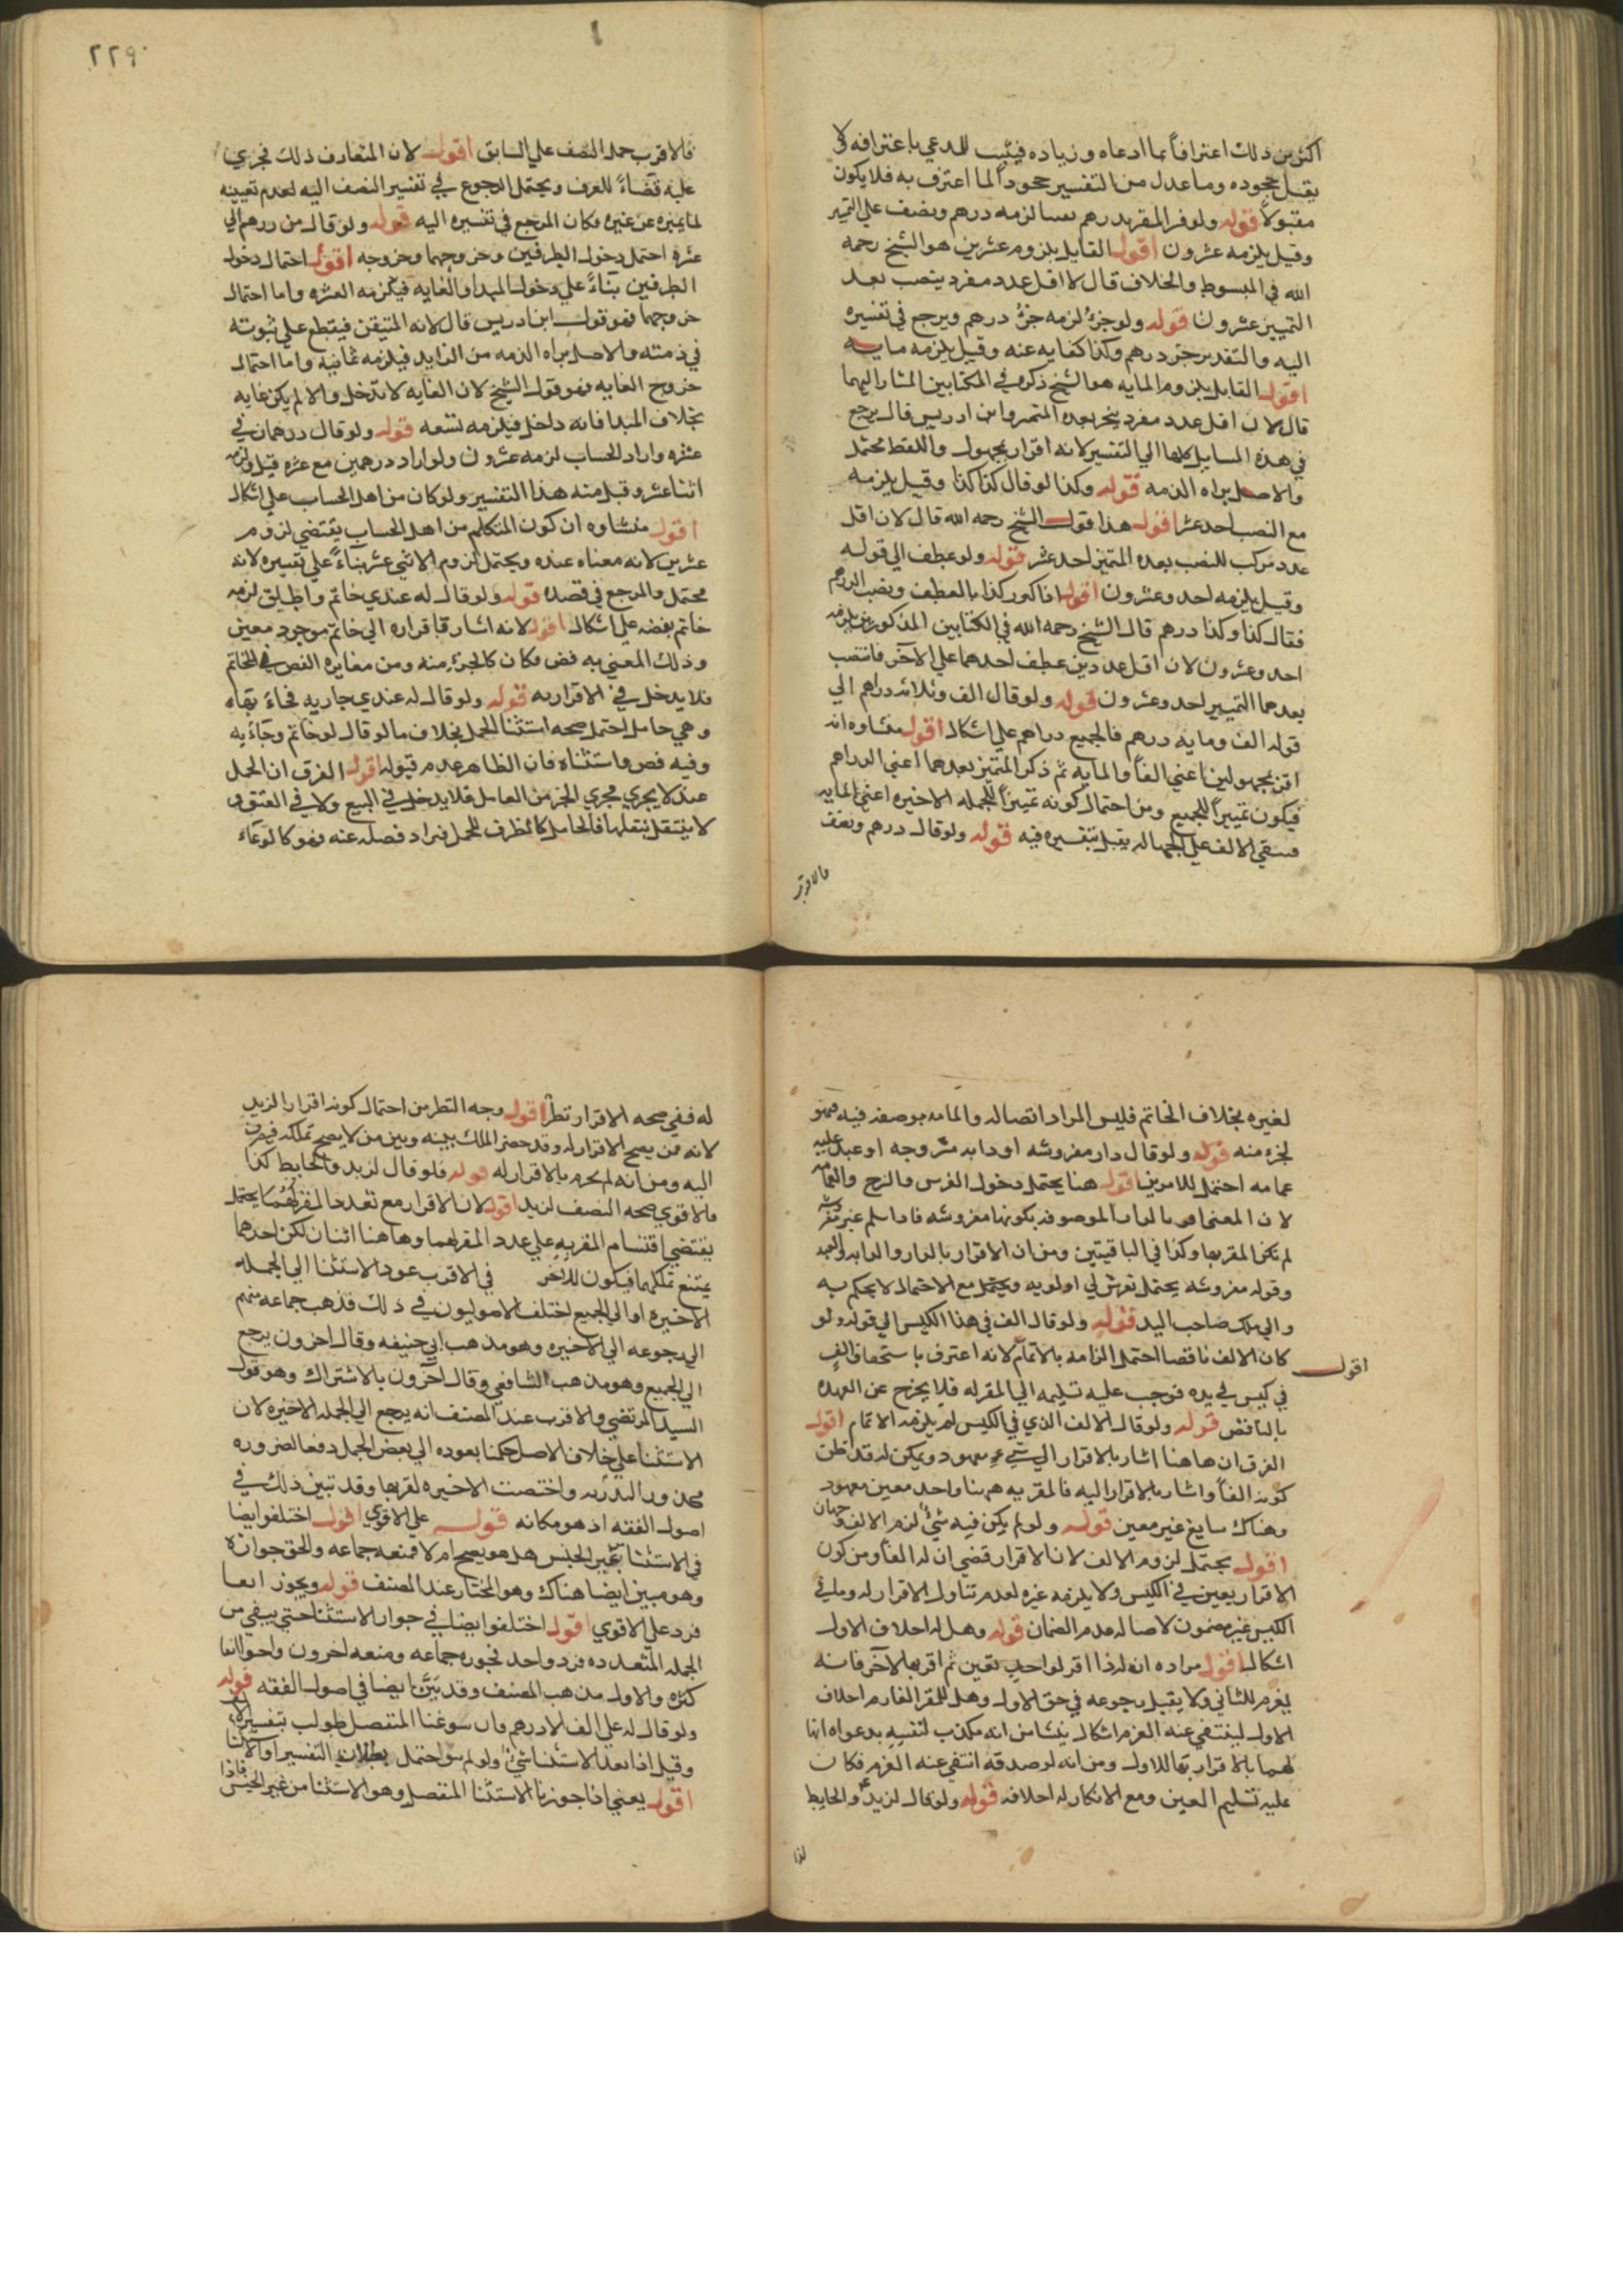 اكثر من ذلك اعترافاً بما ادعاه و زياده فيثبت للمدعي باعترافه ولا
يقبل جحوده وما عدل من التفسير جحوداً لما اعترف به فلا يكون
مقبولاً قوله ولو فسر المقر بدرهم نصبا لزمه درهم ونصف على التميز
وقيل يلزمه عشرون اقول القايل بلزوم عشرين هو الشيخ رحمه
الله في المبسوط والخلاف قال لان اقل عدد مفرد ينصب بعده
التمييز عشرون قوله ولو جرّ لزمه جزء درهم ويرجع في تفسيره
اليه والتقدير جزء درهم وكذا كفايه عنه وقيل يلزمه مايه
اقول القايل بلزوم المايه هو الشيخ ذكره في الكتابين المشار اليهما
قال لان اقل عدد مفرد ينجر بعده المتميز وابن ادريس قال يرجع
في هذه المسايل كلها الى التفسير لانه اقرار بمجهول واللفظ محتمل
والاصل براه الذمه قوله وكذا لو قال كذا كذا وقيل يلزمه
مع النصب احد عشر اقول هذا قول الشيخ رحمه الله قال لان اقل
عدد مركب للنصب بعده المتميز احد عشر قوله ولو عطف الى قوله
وقيل يلزمه احد وعشرون اقول اذا كرر كذا بالعطف ونصب الدرهم
فقال كذا وكذا درهم قال الشيخ رحمه الله في الكتابين المذكورين يلزمه
احد وعشرون لان اقل عددين عطف احدهما على الآخر فانتصب
بعدهما التمييز احد وعشرون قوله ولو قال الف وثلاثه دراهم الى
قوله الف ومايه درهم فالجميع دراهم على اشكال اقول منشاوه انه
اقر بمجهولين اعني الفاً والمايه ثم ذكر المتميز بعدهما اعني الدراهم
فيكون تمييزاً للجميع ومن احتمال كونه تمييزاً للجمله الاخيره اعني المايه
فيبقى الالف على الجهاله يقبل تفسيره فيه قوله ولو قال درهم ونصف
فالاقرب
٢٢٩
فالاقرب حمل النصف على السابق اقول لان المتعارف ذلك فجري
عليه قضاءً للعرف ويحتمل الرجوع في تفسير النصف اليه لعدم تعيينه
لما يميزه عن غيره فكان المرجع في تفسيره اليه قوله ولو قال من درهم الى
عشره احتمل دخول الطرفين وخروجهما وخروجه اقول احتمال دخول
الطرفين بناءً على دخول المبدأ والغايه فيلزمه العشره واما احتمال
خروجهما فهو قول ابن ادريس قال لانه المتيقن فيقطع على ثبوته
في ذمته والاصل براه الذمه من الزايد فيلزمه ثمانيه واما احتمال
خروج الغايه فهو قول الشيخ لان الغايه لا تدخل والا لم يكن غايه
بخلاف المبدا فانه داخل فيلزمه تسعه قوله ولو قال درهمان في
عشره واراد الحساب لزمه عشرون ولو اراد درهمين مع عشره قبل ولزمه
اثنا عشر وقبل منه هذا التفسير ولو كان من اهل الحساب على اشكال
اقول منشاوه ان كون المتكلم من اهل الحساب يقتضي لزوم
عشرين لانه معناه عنده ويحتمل لزوم الاثني عشر بناءً على تفسيره لانه
محتمل والمرجع في قصده قوله ولو قال له عندي خاتم واطلق لزمه
خاتم بفصه على اشكال اقول لانه اشار باقراره الى خاتم موجود معين
وذلك المعني به فص فكان كالجزء منه ومن مغايره الفص في الخاتم
فلا يدخل في الاقرار به قوله ولو قال له عندي جاريه فجاءَ بها
وهي حامل احتمل صحه استثنا الحمل بخلاف ما لو قال له خاتم وجآءَ به
وفيه فص واستثناه فان الظاهر عدم قبوله اقول الفرق ان الحمل
عندلا يجري مجري الجزء من الحامل فلا يدخل في البيع ولا في العتق و
لا ينتقل بنقلها فالحامل كالظرف للحمل فيراد فصله عنه وهو كالوعاء
لغيره بخلاف الخاتم فليس المراد اتصاله وانما مه بوصفه فيه فهو
لجزء منه قوله ولو قال دار مفروشه او دابه مسروجه او عبد عليه
عمامه احتمل للامرين اقول هنا يحتمل دخول الفرس والسرج والعمامه
لان المعنى اقر بالدار الموصوفه بكونها مفروشه فاذا سلم غير مفروشه
لم تكن المقر بها وكذا في الباقيتين ومن ان الاقرار بالدار والدابه والعبد
وقوله مفروشه يحتمل بفرش لي او له به ويحتمل مع الاحتمال لا يحكم به
والي ملك صاحب اليد قوله ولو قال الف في هذا الكيس الى قوله ولو
كان الالف ناقصا احتمل الزامه بالاتمام لانه اعترف باستحقاق الف
اقول
في كيس في يده فوجب عليه تسليمه الى المقر له فلا يخرج عن العهده
بالناقص قوله ولو قال الالف الذي في الكيس لم يلزمه الاتمام اقول
الفرق ان هاهنا اشار بالاقرار الى شيء معهود ويمكن انه قد ظن
كونه الفاً واشار بالاقرار اليه فالمقر به هنا واحد معين معهود
وهناك سايغ غير معين قوله ولو لم يكن فيه شيء لزم الالف وجهان
اقول يحتمل لزوم الالف لان الاقرار قضى ان له الفاً ومن كون
الاقرار يعين في الكيس ولا يلزمه غيره لعدم تناول الاقرار له وما في
الكيس غير مضمون لاصاله عدم الضمان قوله وهل له احلاف الاول
اشكال اقول مراده انه اذا اقر لواحد بعين ثم اقر بها لآخر فانه
يغرم للثاني ولا يقبل رجوعه في حق الاول وهل للمقر الغارم احلاف
الاول لينتفي عنه الغرم اشكال ينشا من انه مكذب لنفسه بدعواه انها
لهما بالاقرار بها للاول ومن انه لو صدقه انتفى عنه الغرم فكان
عليه تسليم العين ومع الانكار له احلافه قوله ولو قال لزيد والحايط
لذا
له ففي صحه الاقرار نظر اقول وجه النظر من احتمال كونه اقرارا لزيد
لانه ممن يصح الاقرار له وقد حصر الملك بينه وبين من لا يصح تملكه فيصرف
اليه ومن انه لم يجزم بالاقرار له قوله فلو قال لزيد والحايط كذا
فالاقوى صحه النصف لزيد اقول لان الاقرار مع تعدد المقر لهما كما يحتمل
يقتضي اقتسام المقر به على عدد المقر لهما وهاهنا اثنان لكن احدهما
يمتنع تملكهما فيكون للاخر في الاقرب عود الاستثنا الى الجمله
الاخيره او الى الجميع اختلف الاصوليون في ذلك فذهب جماعه منهم
الى رجوعه الى الاخيره وهو مذهب ابي حنيفه وقال اخرون يرجع
الى الجميع وهو مذهب الشافعي وقال آخرون بالاشتراك وهو قول
السيد المرتضى والاقرب عند المصنف انه يرجع الى الجمله الاخيره لان
الاستثنا على خلاف الاصل حكمنا بعوده الى بعض الجمل دفعا لضروره
محذور الهذريه واختصت الاخيره لقربها وقد تبين ذلك في
اصول الفقه اذ هو مكانه قوله على الاقوى اقول اختلفوا ايضا
في الاستثنا بغير الجنس هل هو يصح ام لا فمنعه جماعه والحق جوازه
وهو مبين ايضا هناك وهو المختار عند المصنف قوله ويجوز ايضا
فرد على الاقوى اقول اختلفوا ايضا في جواز الاستثنا حتى يبقى من
الجمله المتعدده فرد واحد فجوزه جماعه ومنعه اخرون واوجبوا بقا
كثره والاول مذهب المصنف وقد بيّن ايضا في اصول الفقه قوله
ولو قال له علي الف الا درهم وان سوغنا المتفصل طولب بتفسيره
وقيل اذا بعد الاستثنا شي ولو لم يبق احتمل بطلان التفسير او الاستثنا
اقول يعني اذا جوزنا الاستثنا المنفصل وهو الاستثنا من غير الجنس فاذا